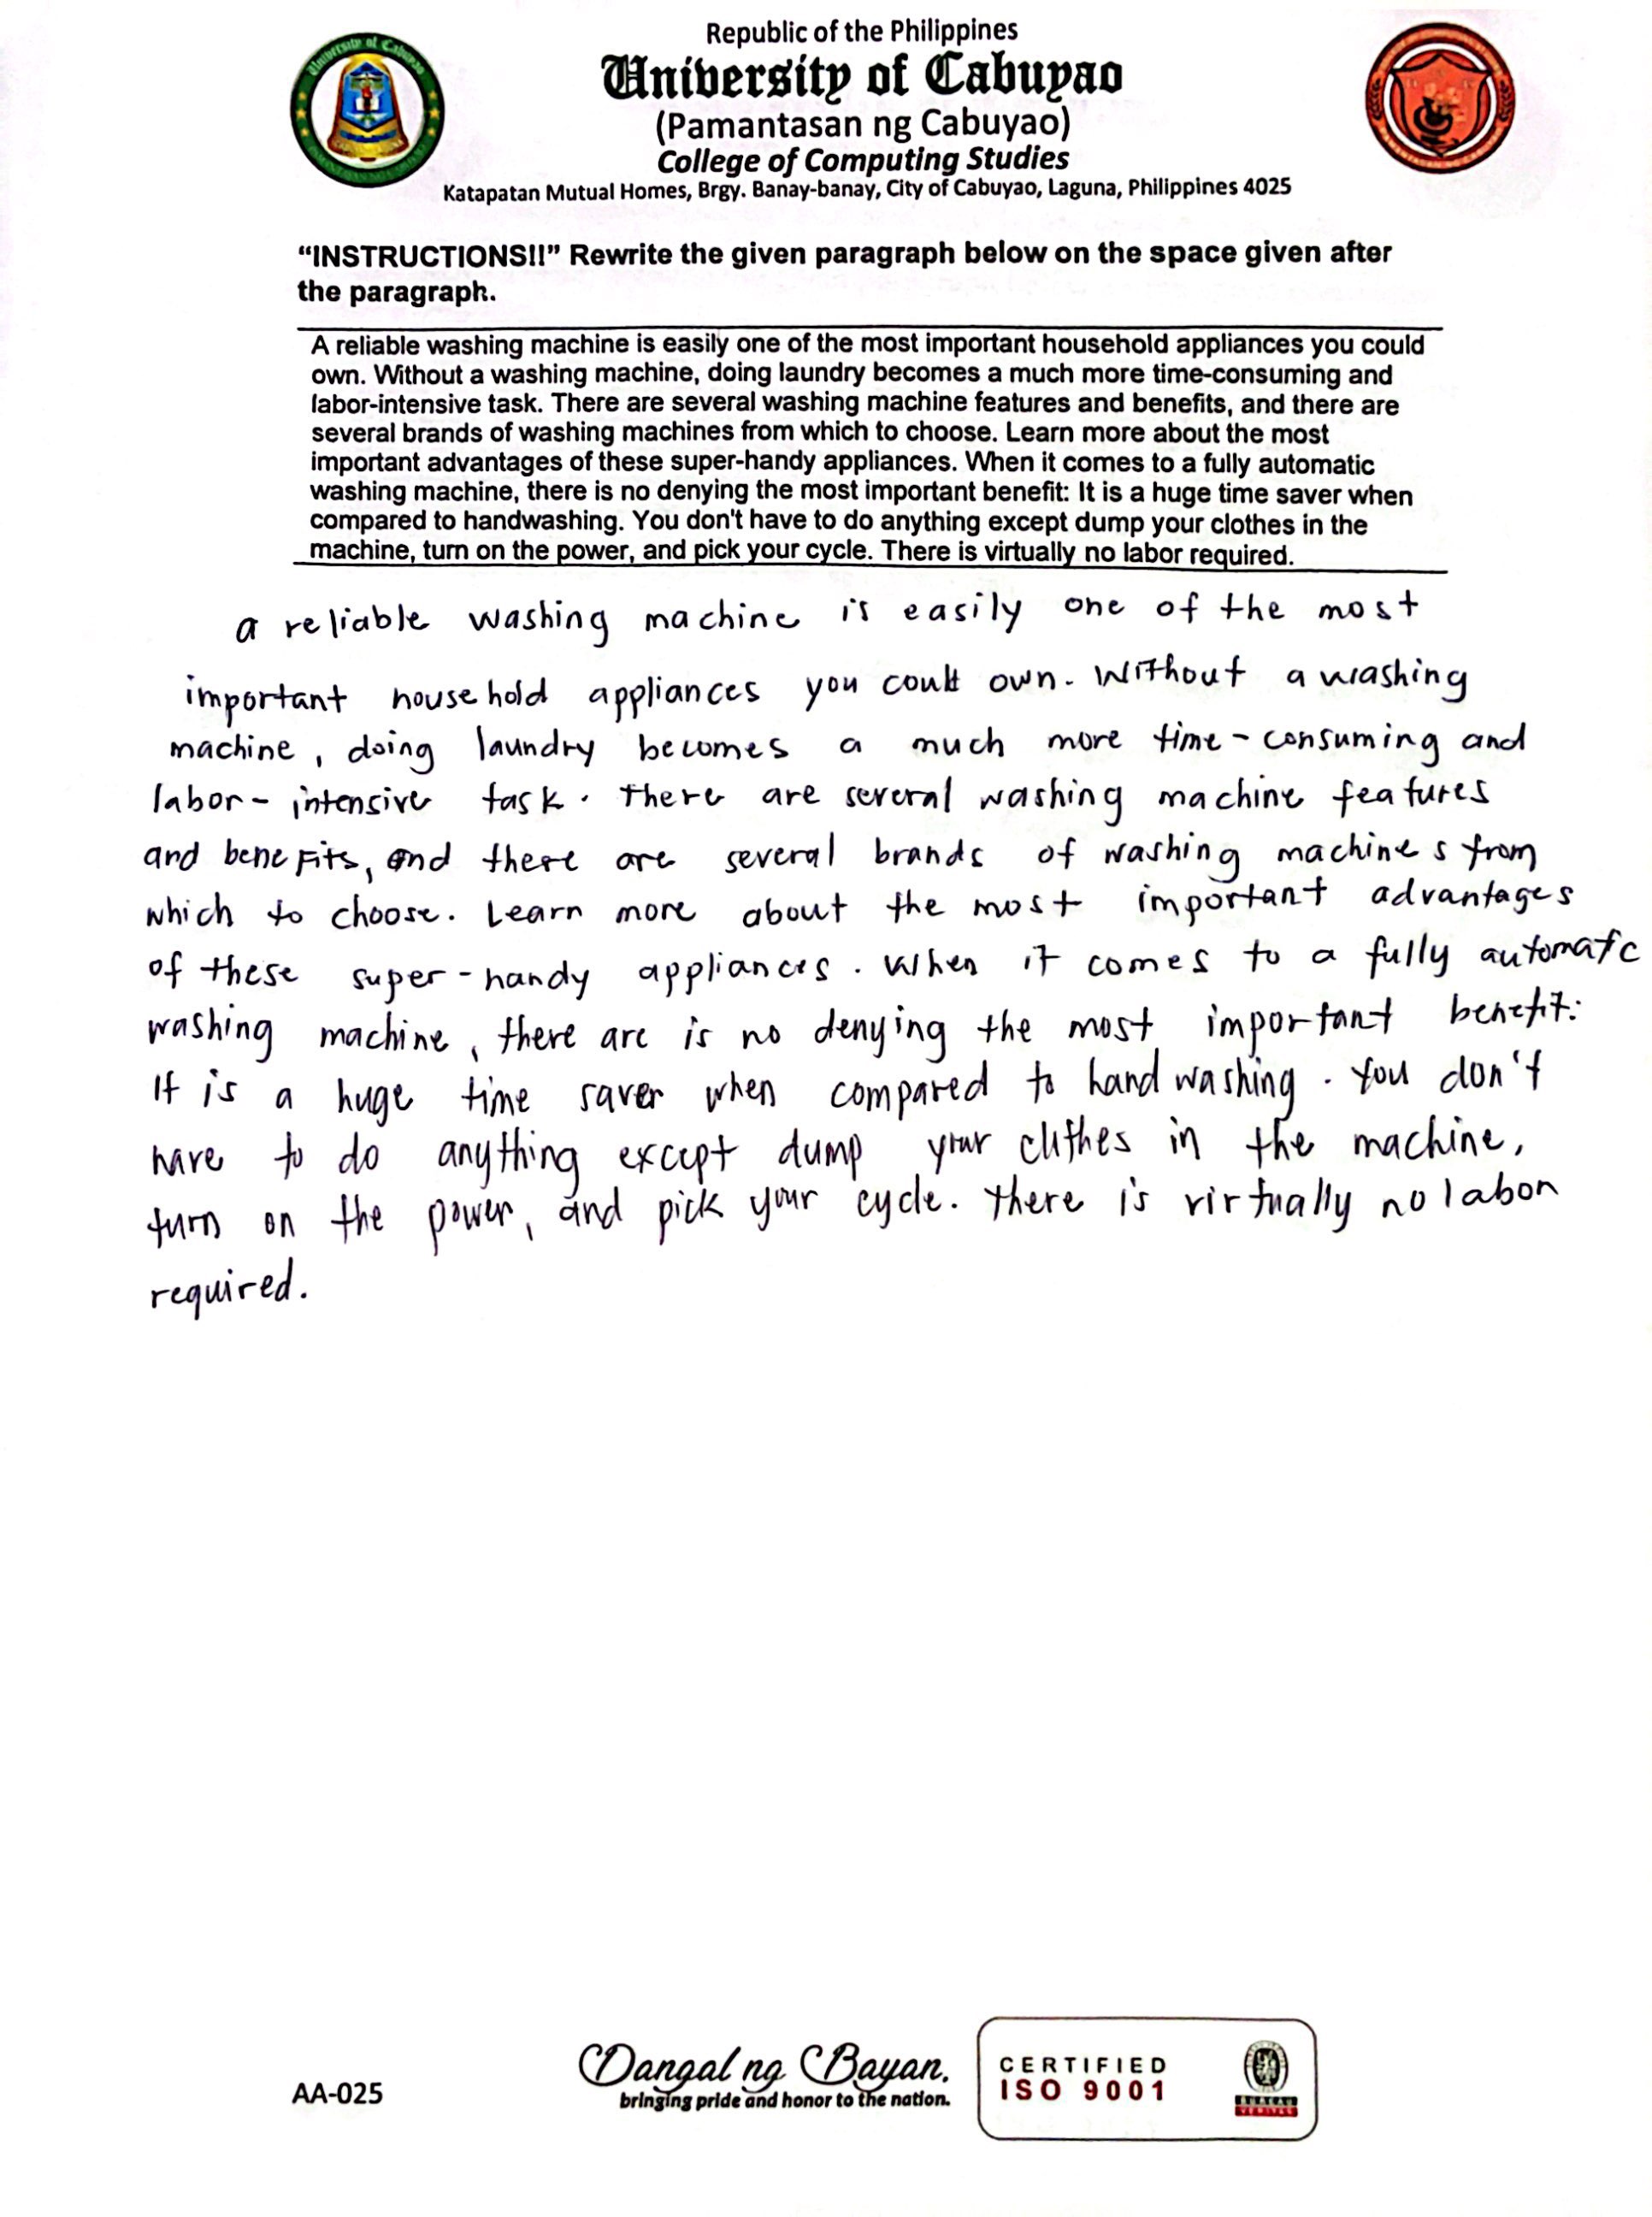 Republic of the Philippines
University of Cabuyao
(Pamantasan ng Cabuyao)
College of Computing Studies
Katapatan Mutual Homes, Brgy. Banay-banay, City of Cabuyao, Laguna, Philippines 4025
“INSTRUCTIONS!!” Rewrite the given paragraph below on the space given after
the paragraph.
A reliable washing machine is easily one of the most important household appliances you could
own. Without a washing machine, doing laundry becomes a much more time-consuming and
labor-intensive task. There are several washing machine features and benefits, and there are
several brands of washing machines from which to choose. Learn more about the most
important advantages of these super-handy appliances. When it comes to a fully automatic
washing machine, there is no denying the most important benefit: It is a huge time saver when
compared to handwashing. You don't have to do anything except dump your clothes in the
machine, turn on the power, and pick your cycle. There is virtually no labor required.
a reliable washing machine is easily one of the most
important household appliances you could own. Without a washing
machine, doing laundry becomes a much more time-consuming and
labor-intensive task. There are several washing machine features
and benefits, and there are several brands of washing machines from
which to choose. Learn more about the most important advantages
of these super-handy appliances. When it comes to a fully automatc
washing machine, there are is no denying the most important benefit:
It is a huge time saver when compared to hand washing. You don't
have to do anything except dump your clothes in the machine,
turn on the power, and pick your cycle. There is virtually no labor
required.
AA-025
Dangal ng Bayan.
bringing pride and honor to the nation.
CERTIFIED
ISO 9001
BUREAU
VERITAS